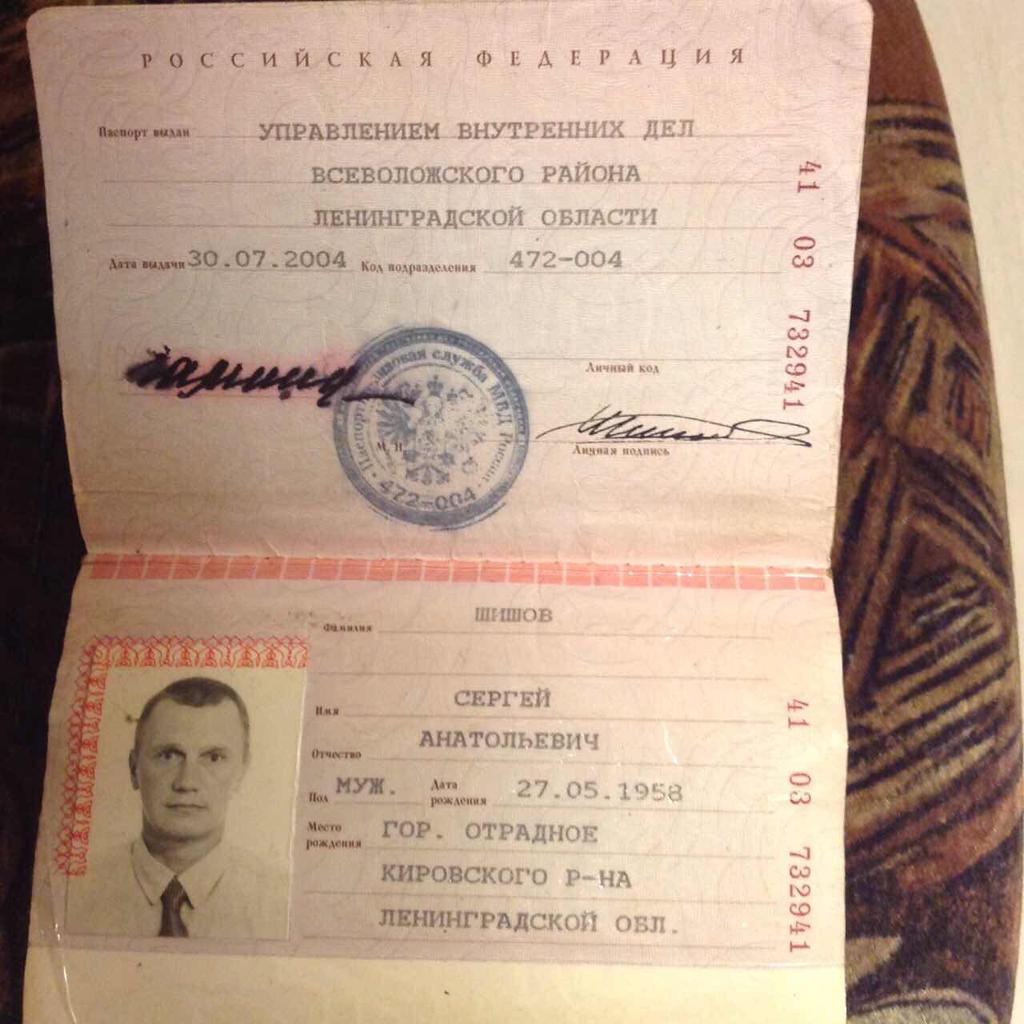 РОССИЙСКАЯ ФЕДЕРАЦИЯ
Паспорт выдан УПРАВЛЕНИЕМ ВНУТРЕННИХ ДЕЛ
ВСЕВОЛОЖСКОГО РАЙОНА
ЛЕНИНГРАДСКОЙ ОБЛАСТИ
Дата выдачи 30.07.2004 Код подразделения 472-004
41 03 732941
Личный код
М. П.
Личная подпись
Паспортно-визовая служба МВД России
472-004
Фамилия ШИШОВ
Имя СЕРГЕЙ
Отчество АНАТОЛЬЕВИЧ
Пол МУЖ. Дата рождения 27.05.1958
Место рождения ГОР. ОТРАДНОЕ
КИРОВСКОГО Р-НА
ЛЕНИНГРАДСКОЙ ОБЛ.
41 03 732941